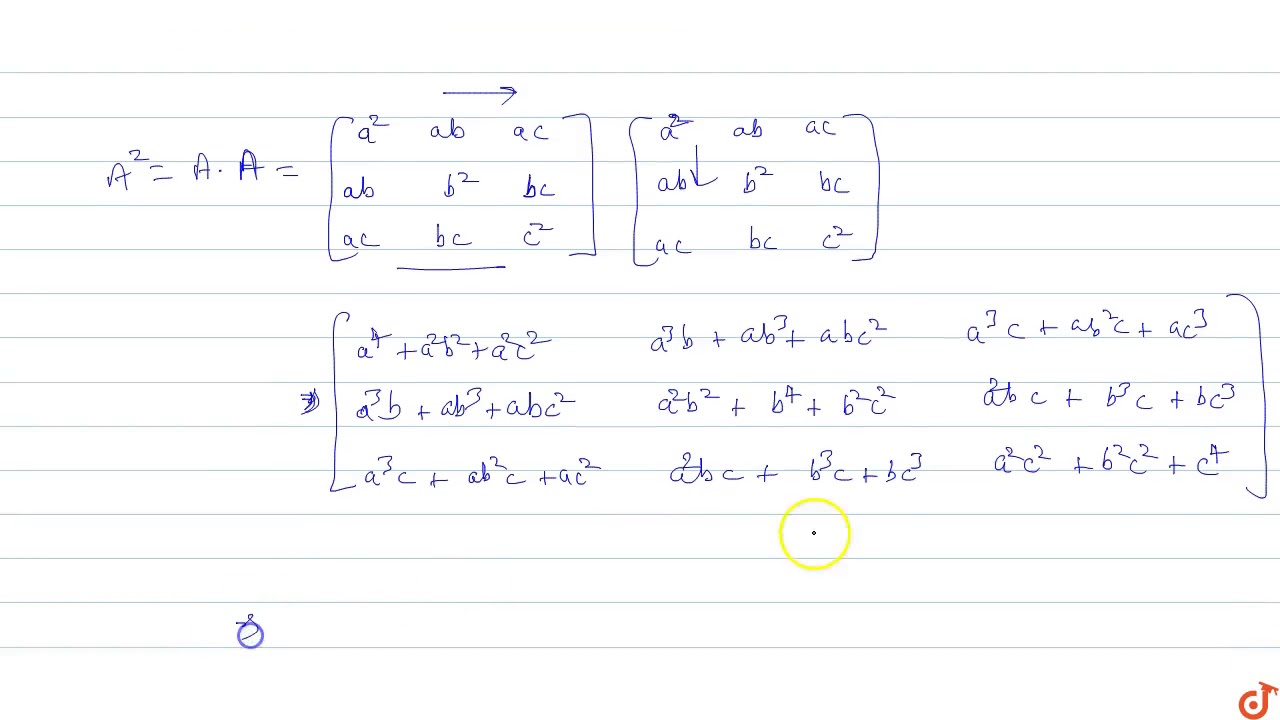 A² = A · A = [ a² ab ac ] [ a² ab ac ]
[ ab b² bc ] [ ab b² bc ]
[ ac bc c² ] [ ac bc c² ]
[ a⁴ + a²b² + a²c² a³b + ab³ + abc² a³c + ab²c + ac³ ]
⇒ [ a³b + ab³ + abc² a²b² + b⁴ + b²c² a²bc + b³c + bc³ ]
[ a³c + ab²c + ac² a²bc + b³c + bc³ a²c² + b²c² + c⁴ ]